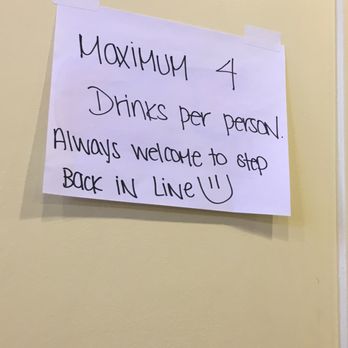 MAXIMUM 4
Drinks per person.
Always welcome to step
Back in Line